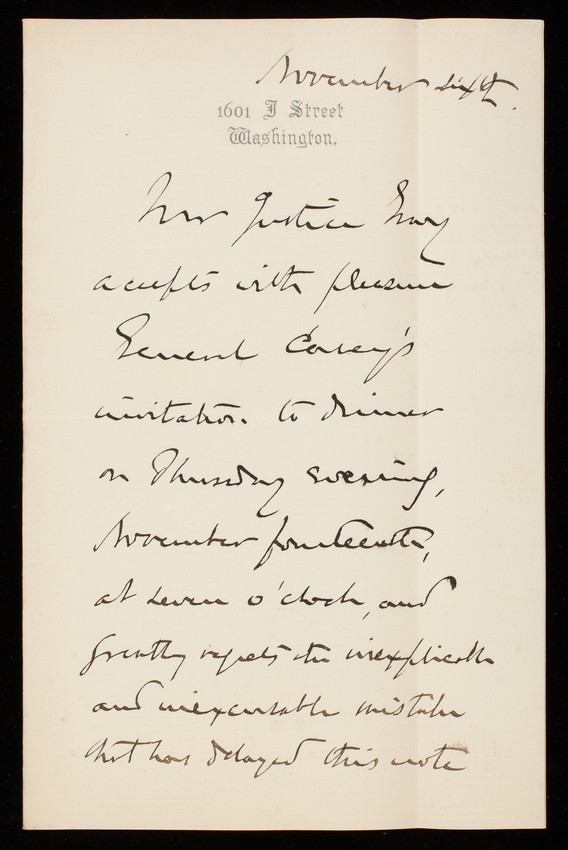 November sixth.
1601 I Street
Washington.
Mr Justice Gray
accepts with pleasure
General Casey's
invitation to dinner
on Thursday evening,
November fourteenth,
at seven o'clock, and
greatly regrets the inexplicable
and inexcusable mistake
that has delayed this note